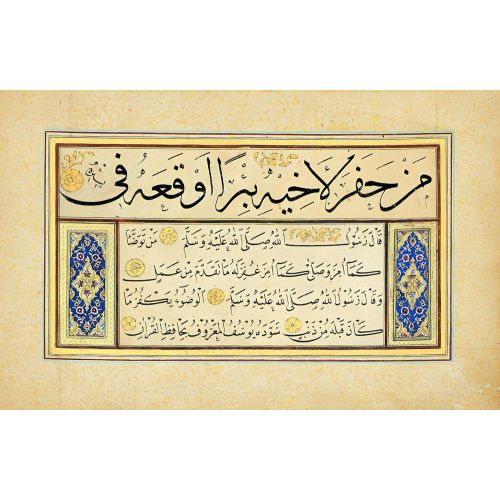 مَنْ حَفَرَ لِاَخِيهِ بِيرًا اَوْقَعَهُ فِى
قَالَ رَسُولُ اللهِ صَلَّى اللهُ عَلَيْهِ وَسَلَّمَ مَنْ تَوَضَّأَ
كَمَا اُمِرَ وَصَلَّى كَمَا اُمِرَ غُفِرَ لَهُ مَا تَقَدَّمَ مِنْ عَمَلٍ
وَقَالَ رَسُولُ اللهِ صَلَّى اللهُ عَلَيْهِ وَسَلَّمَ اَلْوُضُوءُ يُكَفِّرُ مَا
كَانَ قَبْلَهُ مِنْ ذَنْبٍ سَوَّدَهُ يُوسُفُ الْمَعْرُوفُ بِحَافِظِ الْقُرْاٰنِ